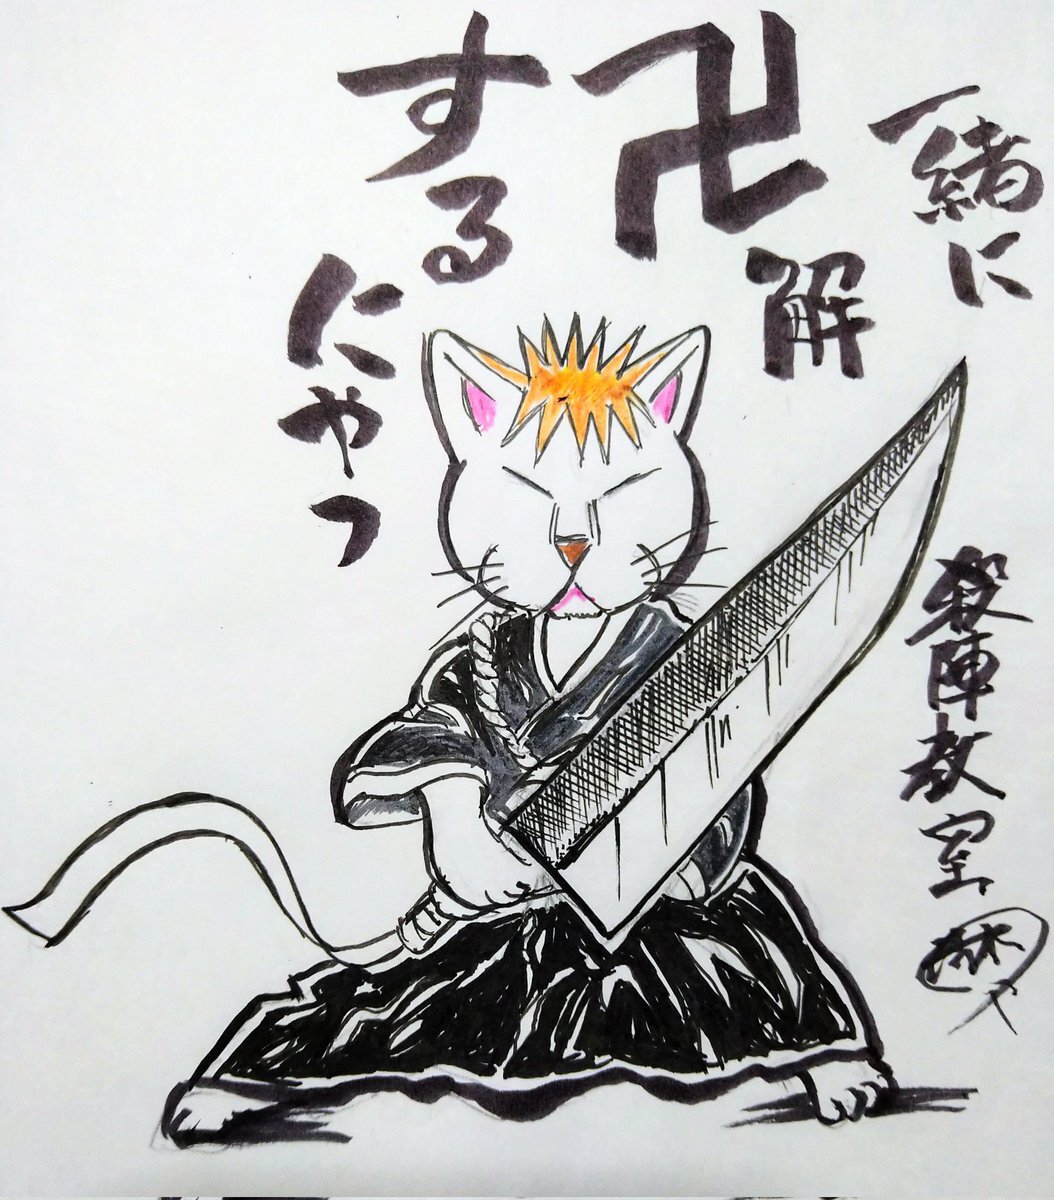 一緒に
卍解
する
にゃっ
殺陣教室